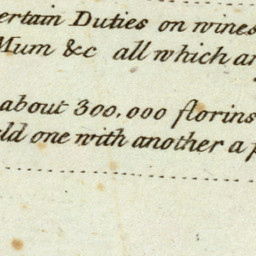 ertain Duties on wines
Mum &c all which
about 300,000 florins
ld one with another a